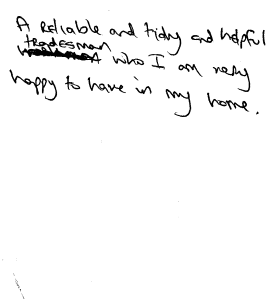 A reliable and tidy and helpful
tradesman
who I am very
happy to have in my home.